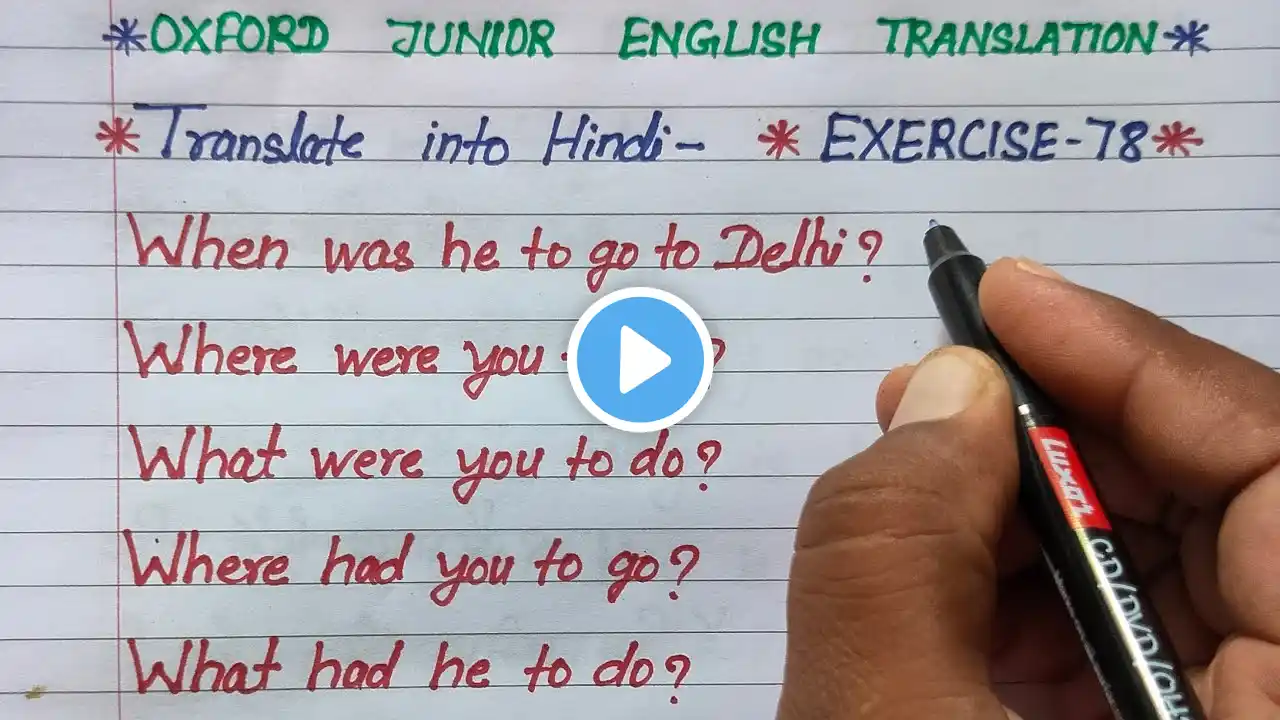 *OXFORD JUNIOR ENGLISH TRANSLATION*
*Translate into Hindi- *EXERCISE-78*
When was he to go to Delhi?
Where were you ?
What were you to do?
Where had you to go?
What had he to do?
Luxor
CD/DVD/OH